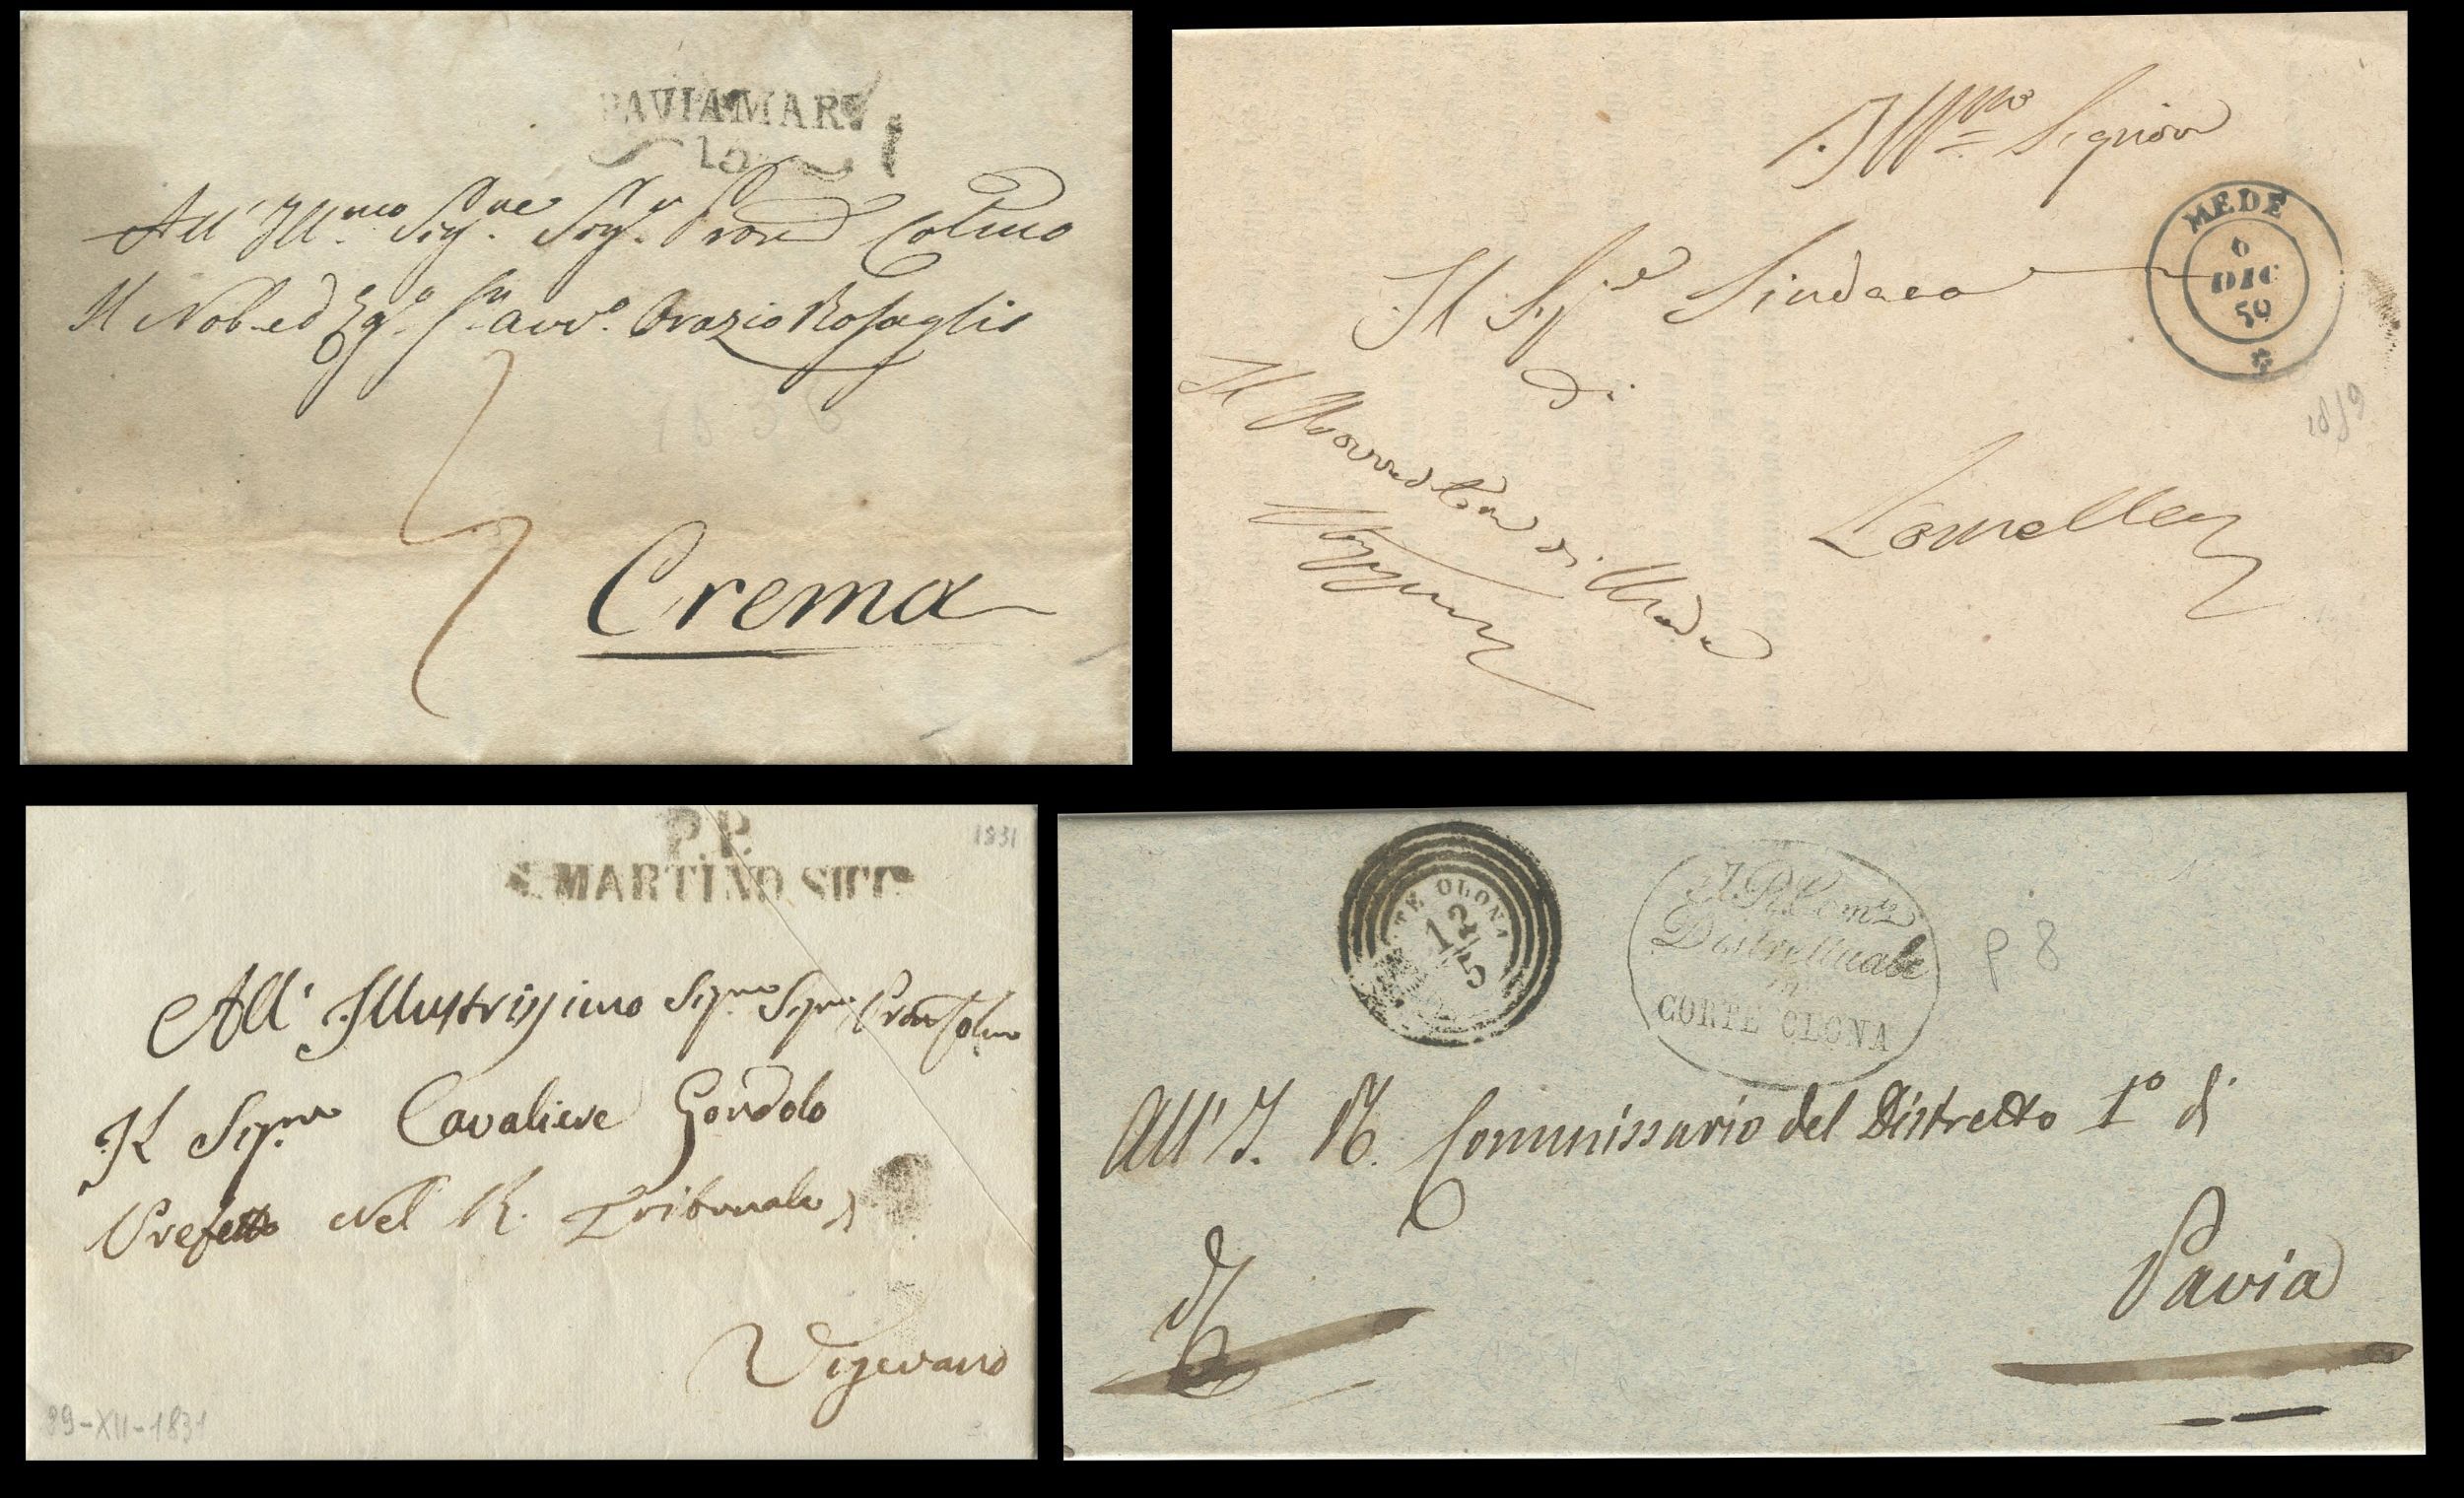 PAVIA MAR.
15
All' Ill.mo Sig.re Sig.r Pron Colmo
Il Nob. ed Eg.o Sr. avv.o Orazio
1836
Crema
Ill.mo Signore
MEDE
6
DIC
59
Il Sig.re Sindaco
di
1859
Lomello
Il di Mede
P.P.
S. MARTINO SICC
1831
All' Illustrissimo Sig.re Sig.re Pron Colmo
Il Sig.re Cavaliere Gondolo
Prefetto nel R. Tribunale di
Vigevano
29-XII-1831
CORTE OLONA
12/5
I. R. Com.to
Distrettuale
in
CORTE OLONA
P 8
All' I. R. Commissario del Distretto 1º di
Pavia